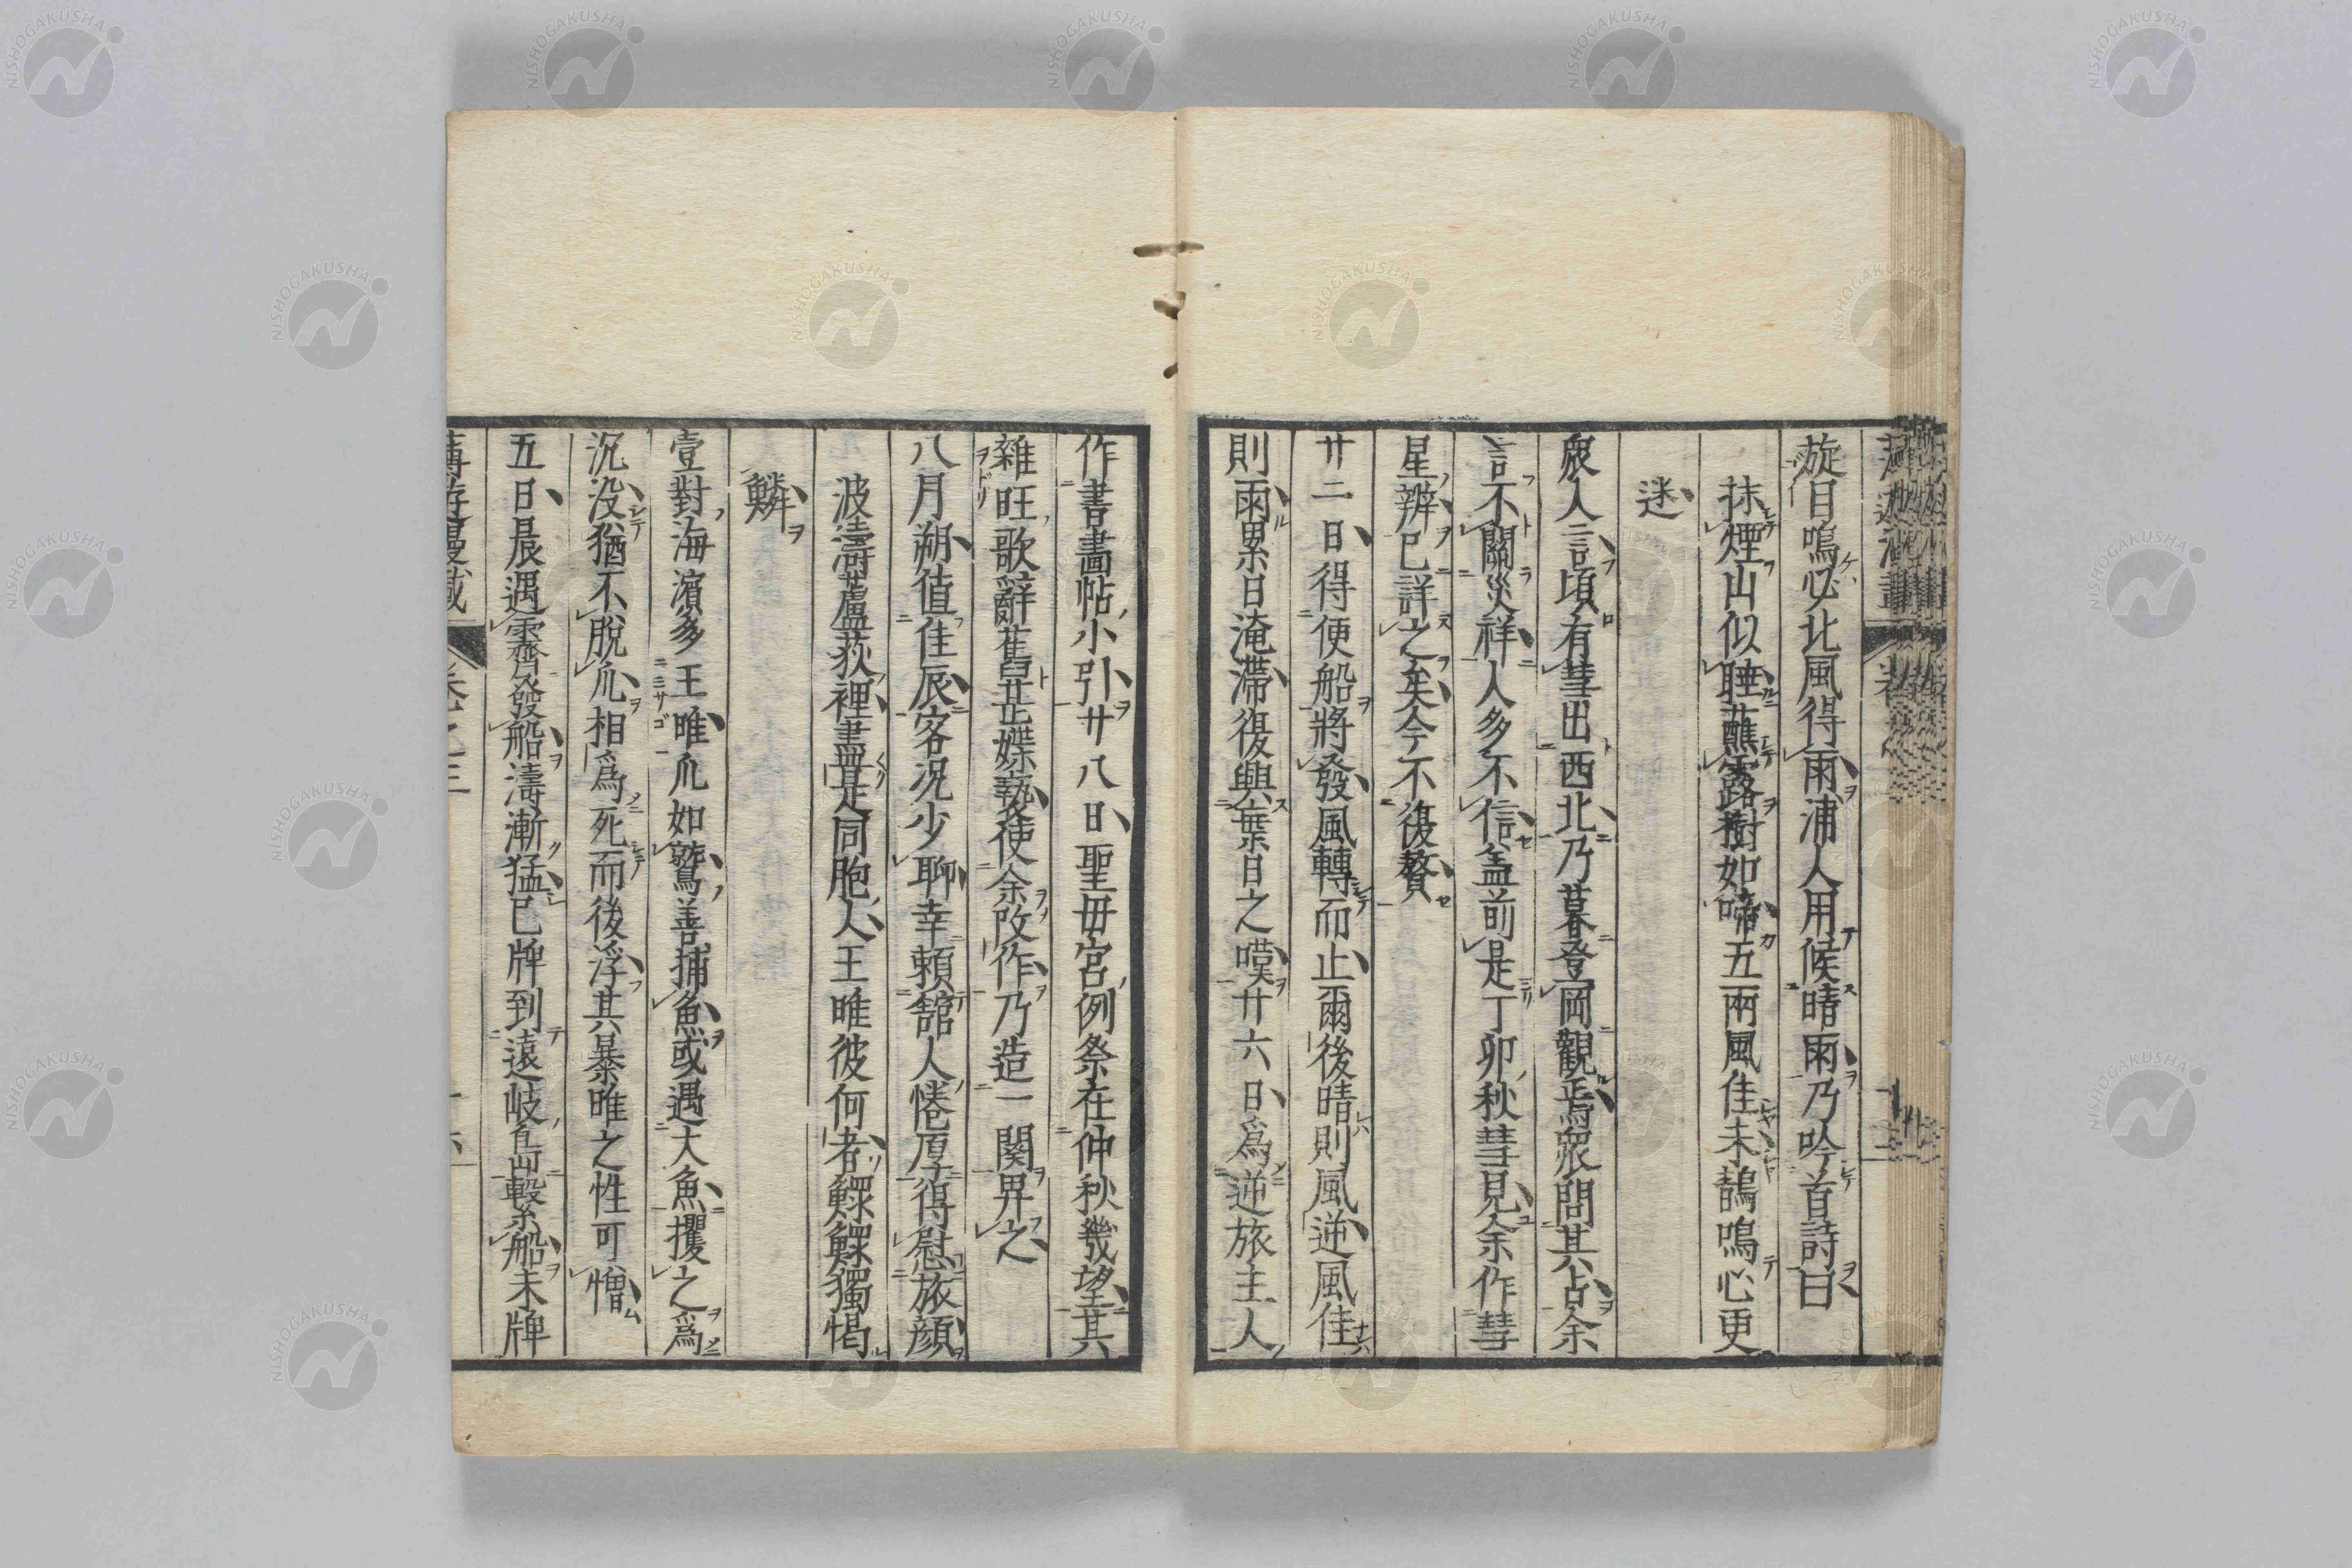 旋目鳴必北風得雨浦人用候晴雨乃吟首詩曰
抹煙山似睡蘸露樹如啼五兩風佳未鵲鳴心更
迷
衆人言頃有彗出西北乃暮登岡觀焉衆問其占余
言不關災祥人多不信盖前是丁卯秋彗見余作彗
星辨已詳之矣今不復贅
廿二日得便船將發風轉而止爾後晴則風逆風佳
則雨累日淹滯復興葉日之嘆廿六日爲逆旅主人
作書畫帖小引廿八日聖毋宮例祭在仲秋幾望其
雜旺歌辭舊甚媟褻使余改作乃造一闋畀之
八月朔值佳辰客況少聊幸賴舘人惓厚得慰旅顔
波濤蘆荻裡盡是同胞人王唯彼何者鰥鰥獨愒
鱗
壹對海濱多王唯爪如鷲善捕魚或遇大魚攫之爲
沉没猶不脱爪相爲死而後浮其暴唯之性可憎
五日晨遇霽發船濤漸猛巳牌到遠岐島繫船未牌
NISHOGAKUSHA